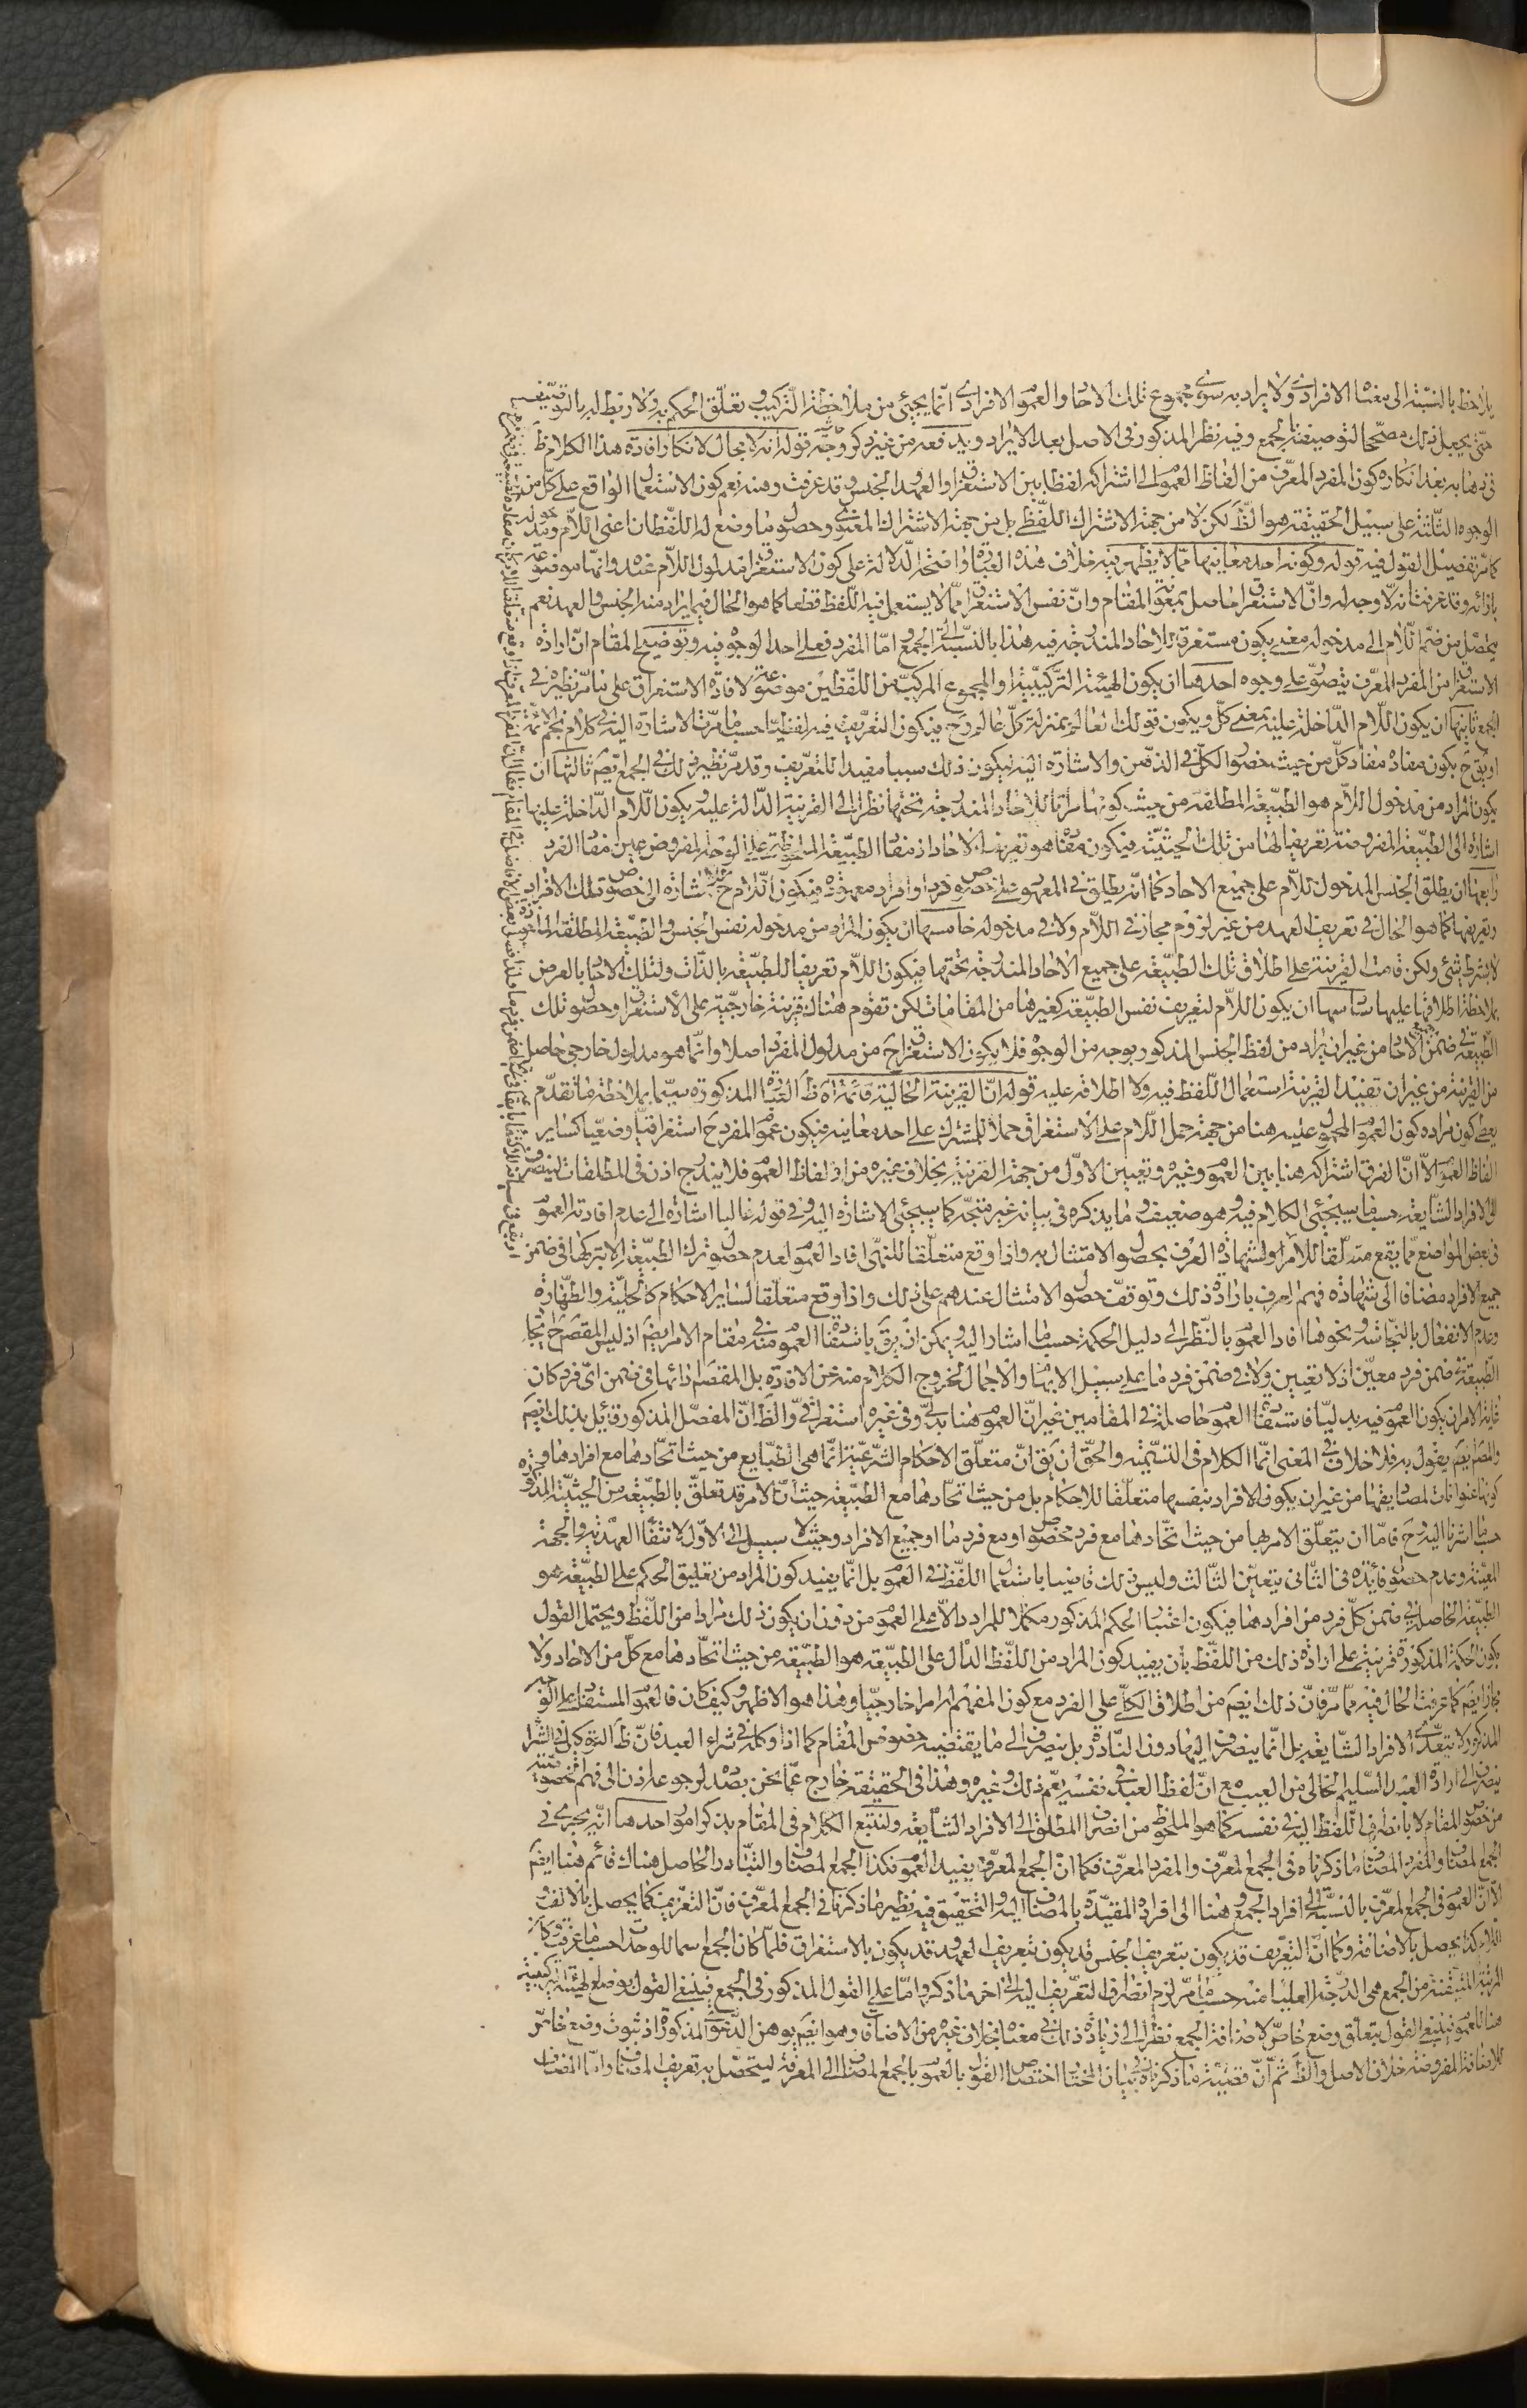 يلاحظ بالنسبة الى معناه الافرادى ولا يراد به سوى مجموع تلك الاحاد والعموم الافرادى انما يجيئ من ملاحظة التركيب و تعلق الحكم به ولا ربط له بالتوصيف
حتى يجعل ذلك مصححا لتوصيفه بالجمع وفيه نظر المذكور فى الاصل بعد الايراد و يدفعه من غير ذكر وجه قوله انه لا مجال لانكار افادة هذا الكلام ظ
فى ذهابه بعد انكاره كون المفرد المعرف من الفاظ العموم الى اشتراكه لفظا بين الاستغراق والعهد والجنس و قد عرفت وهنه نعم كون الاستعمال الواقع على كل من
الوجوه الثلثة على سبيل الحقيقة هو الظ لكن لا من جهة الاشتراك اللفظى بل من جهة الاشتراك المعنوى و حصول ما وضع له اللفظان اعنى اللام و مدخوله
كما مر تفصيل القول فيه قوله وكونه احد معانيها مما لا يظهر فيه خلاف هذه العبارة واضحة الدلالة على كون الاستغراق مدلول اللام عنده وانها موضوعة
بازائه وقد عرفت انه لا وجه له وان الاستغراق حاصل بمعونة المقام وان نفس الاستغراق مما لا يستعمل فيه اللفظ قطعا كما هو الحال فيما يراد منه الجنس و العهد نعم
يحصل من ضم اللام الى مدخوله معنى يكون مستغرقا للاحاد المندرجة فيه هذا بالنسبة الى الجمع و اما المفرد فعلى احد الوجوه فيه و توضيح المقام ان ارادة
الاستغراق من المفرد المعرف يتصور على وجوه احدها ان يكون الهيئة التركيبية او المجموع المركب من اللفظين موضوعة لافادة الاستغراق على ما مر نظيره فى
الجمع ثانيها ان يكون اللام الداخلة عليه بمعنى كل و يكون قولك العالم بمنزلة كل عالم و ح فيكون التعريف فيه لفظيا حسب ما مرت الاشارة اليه فى كلام نجم الائمة
او يق ح يكون مفاده مفاد كل من حيث حضور الكل فى الذهن والاشارة اليه فيكون ذلك سببا مفيدا للتعريف و قد مر نظير ذلك فى الجمع ايضم ثالثها ان
يكون المراد من مدخول اللام هو الطبيعة المطلقة من حيث كونها سارية للاحاد المندرجة تحتها نظرا الى القرينة الدالة عليه و يكون اللام الداخلة عليها
اشارة الى الطبيعة المفروضة تعريفا لها من تلك الحيثية فيكون مفادها هو تعريف الاحاد اذ مفاد الطبيعة الملحوظة على الوجه المفروض عين مفاد الفرد
رابعها ان يطلق الجنس المدخول للام على جميع الاحاد كما انه يطلق فى المعهود على خصوص فرد او افراد معهودة فيكون اللام ح اشارة الى خصوص تلك الافراد
و تعريفها كما هو الحال فى تعريف العهد من غير لزوم مجاز فى اللام ولا فى مدخوله خامسها ان يكون المراد من مدخوله نفس الجنس و الطبيعة المطلقة الماخوذة
لا بشرط شئ ولكن قامت القرينة على اطلاق تلك الطبيعة على جميع الاحاد المندرجة تحتها فيكون اللام تعريفا للطبيعة بالذات ولتلك الاحاد بالعرض
بملاحظة اطلاقها عليها سادسها ان يكون اللام لتعريف نفس الطبيعة كغيرها من المقامات لكن تقوم هناك قرينة خارجية على الاستغراق و حصول تلك
الطبيعة فى ضمن جميع الاحاد من غير ان يراد من لفظ الجنس المذكور بوجه من الوجوه فلا يكون الاستغراق ح من مدلول المفرد اصلا وانما هو مدلول خارجى حاصل
من القرينة من غير ان تفيد القرينة استعمال اللفظ فيه ولا اطلاقه عليه قوله ان القرينة الحالية قائمة اه ظ العبارة المذكورة سيما بملاحظة ما تقدم
يعطى كون مراده كون العموم المحمول عليه هنا من جهة حمل اللام على الاستغراق حملا للمشترك على احد معانيه فيكون عموم المفرد ح استغراقيا وضعيا كسائر
الفاظ العموم الا ان الفرق اشتراكه هنا بين العموم و غيره و تعيين الاول من جهة القرينة بخلاف غيره من الفاظ العموم فلا يندرج اذن فى المطلقات لينصرف
الى الافراد الشايعة حسب ما سيجئى الكلام فيه و هو ضعيف و ما يذكره فى بيانه غير متجه كما سيجئى الاشارة اليه و فى قوله غالبا اشارة الى عدم افادته العموم
فى بعض المواضع مما يقع متعلقا للامر و لشهادة العرف بحصول الامتثال به واذا وقع متعلقا للنهى افاد العموم لعدم حصول ترك الطبيعة الا بتركها فى ضمن
جميع الافراد مضافا الى شهادة فهم العرف بارادة ذلك و توقف حصول الامتثال عندهم على ذلك واذا وقع متعلقا لسائر الاحكام كالحلية والطهارة
وعدم الانفعال بالنجاسة و نحوها افاد العموم بالنظر الى دليل الحكمة حسب ما اشار اليه و يمكن ان يرق باستفادة العموم منه فى مقام الامر ايضم اذ ليس المقصود ح ايجاد
الطبيعة فى ضمن فرد معين اذ لا تعيين ولا فى ضمن فرد ما على سبيل الابهام والاجمال لخروج الكلام منه عن الافادة بل المقصود ادائها فى ضمن اى فرد كان
غاية الامر ان يكون العموم فيه بدليا فاستفادة العموم حاصلة فى المقامين غير ان العموم هنا بدلى و فى غيره استغراقى و الظ ان المفصل المذكور قائل بذلك ايضم
والمصم ايضم يقول به فلا خلاف فى المعنى انما الكلام فى التسمية والحق ان يق ان متعلق الاحكام الشرعية انما هى الطبايع من حيث اتحادها مع افرادها و
كونها عنوانات لمصاديقها من غير ان يكون الافراد بنفسها متعلقا للاحكام بل من حيث اتحادها مع الطبيعة حيث ان الامر قد تعلق بالطبيعة من الحيثية المذكورة
حسب ما اشرنا اليه و ح فاما ان يتعلق الامر بها من حيث اتحادها مع فرد مخصوص او مع فرد ما او جميع الافراد و حيث لا سبيل الى الاول لانتفاء العهدية والجهة
المعينة وعدم حصول فائدة فى الثانى يتعين الثالث وليس ذلك قاضيا باستعمال اللفظ فى العموم بل انما يفيد كون المراد من تعليق الحكم على الطبيعة هو
الطبيعة الحاصلة فى ضمن كل فرد من افرادها فيكون اعتبار الحكم المذكور مكملا للمراد دالا على العموم من دون ان يكون ذلك مرادا من اللفظ ويحتمل القول
بكون الحكمة المذكورة قرينة على ارادة ذلك من اللفظ بان يفيد كون المراد من اللفظ الدال على الطبيعة هو الطبيعة من حيث اتحادها مع كل من الاحاد ولا
مجاز ايضم كما عرفت الحال فيه مما مر فان ذلك ايضم من اطلاق الكلى على الفرد مع كون المفهم له امرا خارجيا و هذا هو الاظهر و كيف كان فالعموم المستفاد على الوجه
المذكور لا يتعدى الافراد الشايعة بل انما ينصرف اليها دون النادرة بل ينصرف الى ما يقتضيه خصوص المقام كما اذا وكله فى شراء العبد فان ظ التوكيل فى الشراء
ينصرف الى ارادة العبد السليم الخالى من العيب مع ان لفظ العبد فى نفسه يعم ذلك و غيره و هذا فى الحقيقة خارج عما نحن بصدده لرجوعه اذن الى فهم الخصوصية
من خصوص المقام لا بانصراف اللفظ اليه فى نفسه كما هو الملحوظ من انصراف المطلق الى الافراد الشايعة و لنتبع الكلام فى المقام بذكر امور احدها انه يجرى فى
الجمع المضاف والمفرد المضاف ما ذكرناه فى الجمع المعرف و المفرد المعرف فكما ان الجمع المعرف يفيد العموم فكذا الجمع المضاف والتبادر الحاصل هناك قائم هنا ايضم
الا ان العموم فى الجمع المعرف بالنسبة الى افراد الجمع و هنا الى افراده المقيدة بالمضاف اليه والتحقيق فيه نظير ما ذكرنا فى الجمع المعرف فان التعريف كما يحصل بالالف و
اللام كذا يحصل بالاضافة و كما ان التعريف قد يكون بتعريف الجنس قد يكون بتعريف العهد و قد يكون بالاستغراق فلما كان الجمع اسما للوحدات حسب ما عرفت و كان
المرتبة المتيقنة من الجمع هى الدرجة العليا منه حسب ما مر لزم انصراف التعريف اليه الى اخر ما ذكر و اما على القول المذكور فى الجمع فينبغى القول بوضع الهيئة التركيبية
هنا للعموم فينبغى القول بتعلق وضع خاص لاضافة الجمع نظرا الى زيادة ذلك فى معناه بخلاف غيره من الاضاف و هو ايضم يوهن الدعوى المذكورة اذ ثبوت وضع خاص
للاضافة المفروضة خلاف الاصل والظ ثم ان قضية ما ذكرناه فى بيان المختار اختصاص القول بالعموم بالجمع المضاف الى المعرفة ليتحصل به تعريف المضاف و اما المضاف